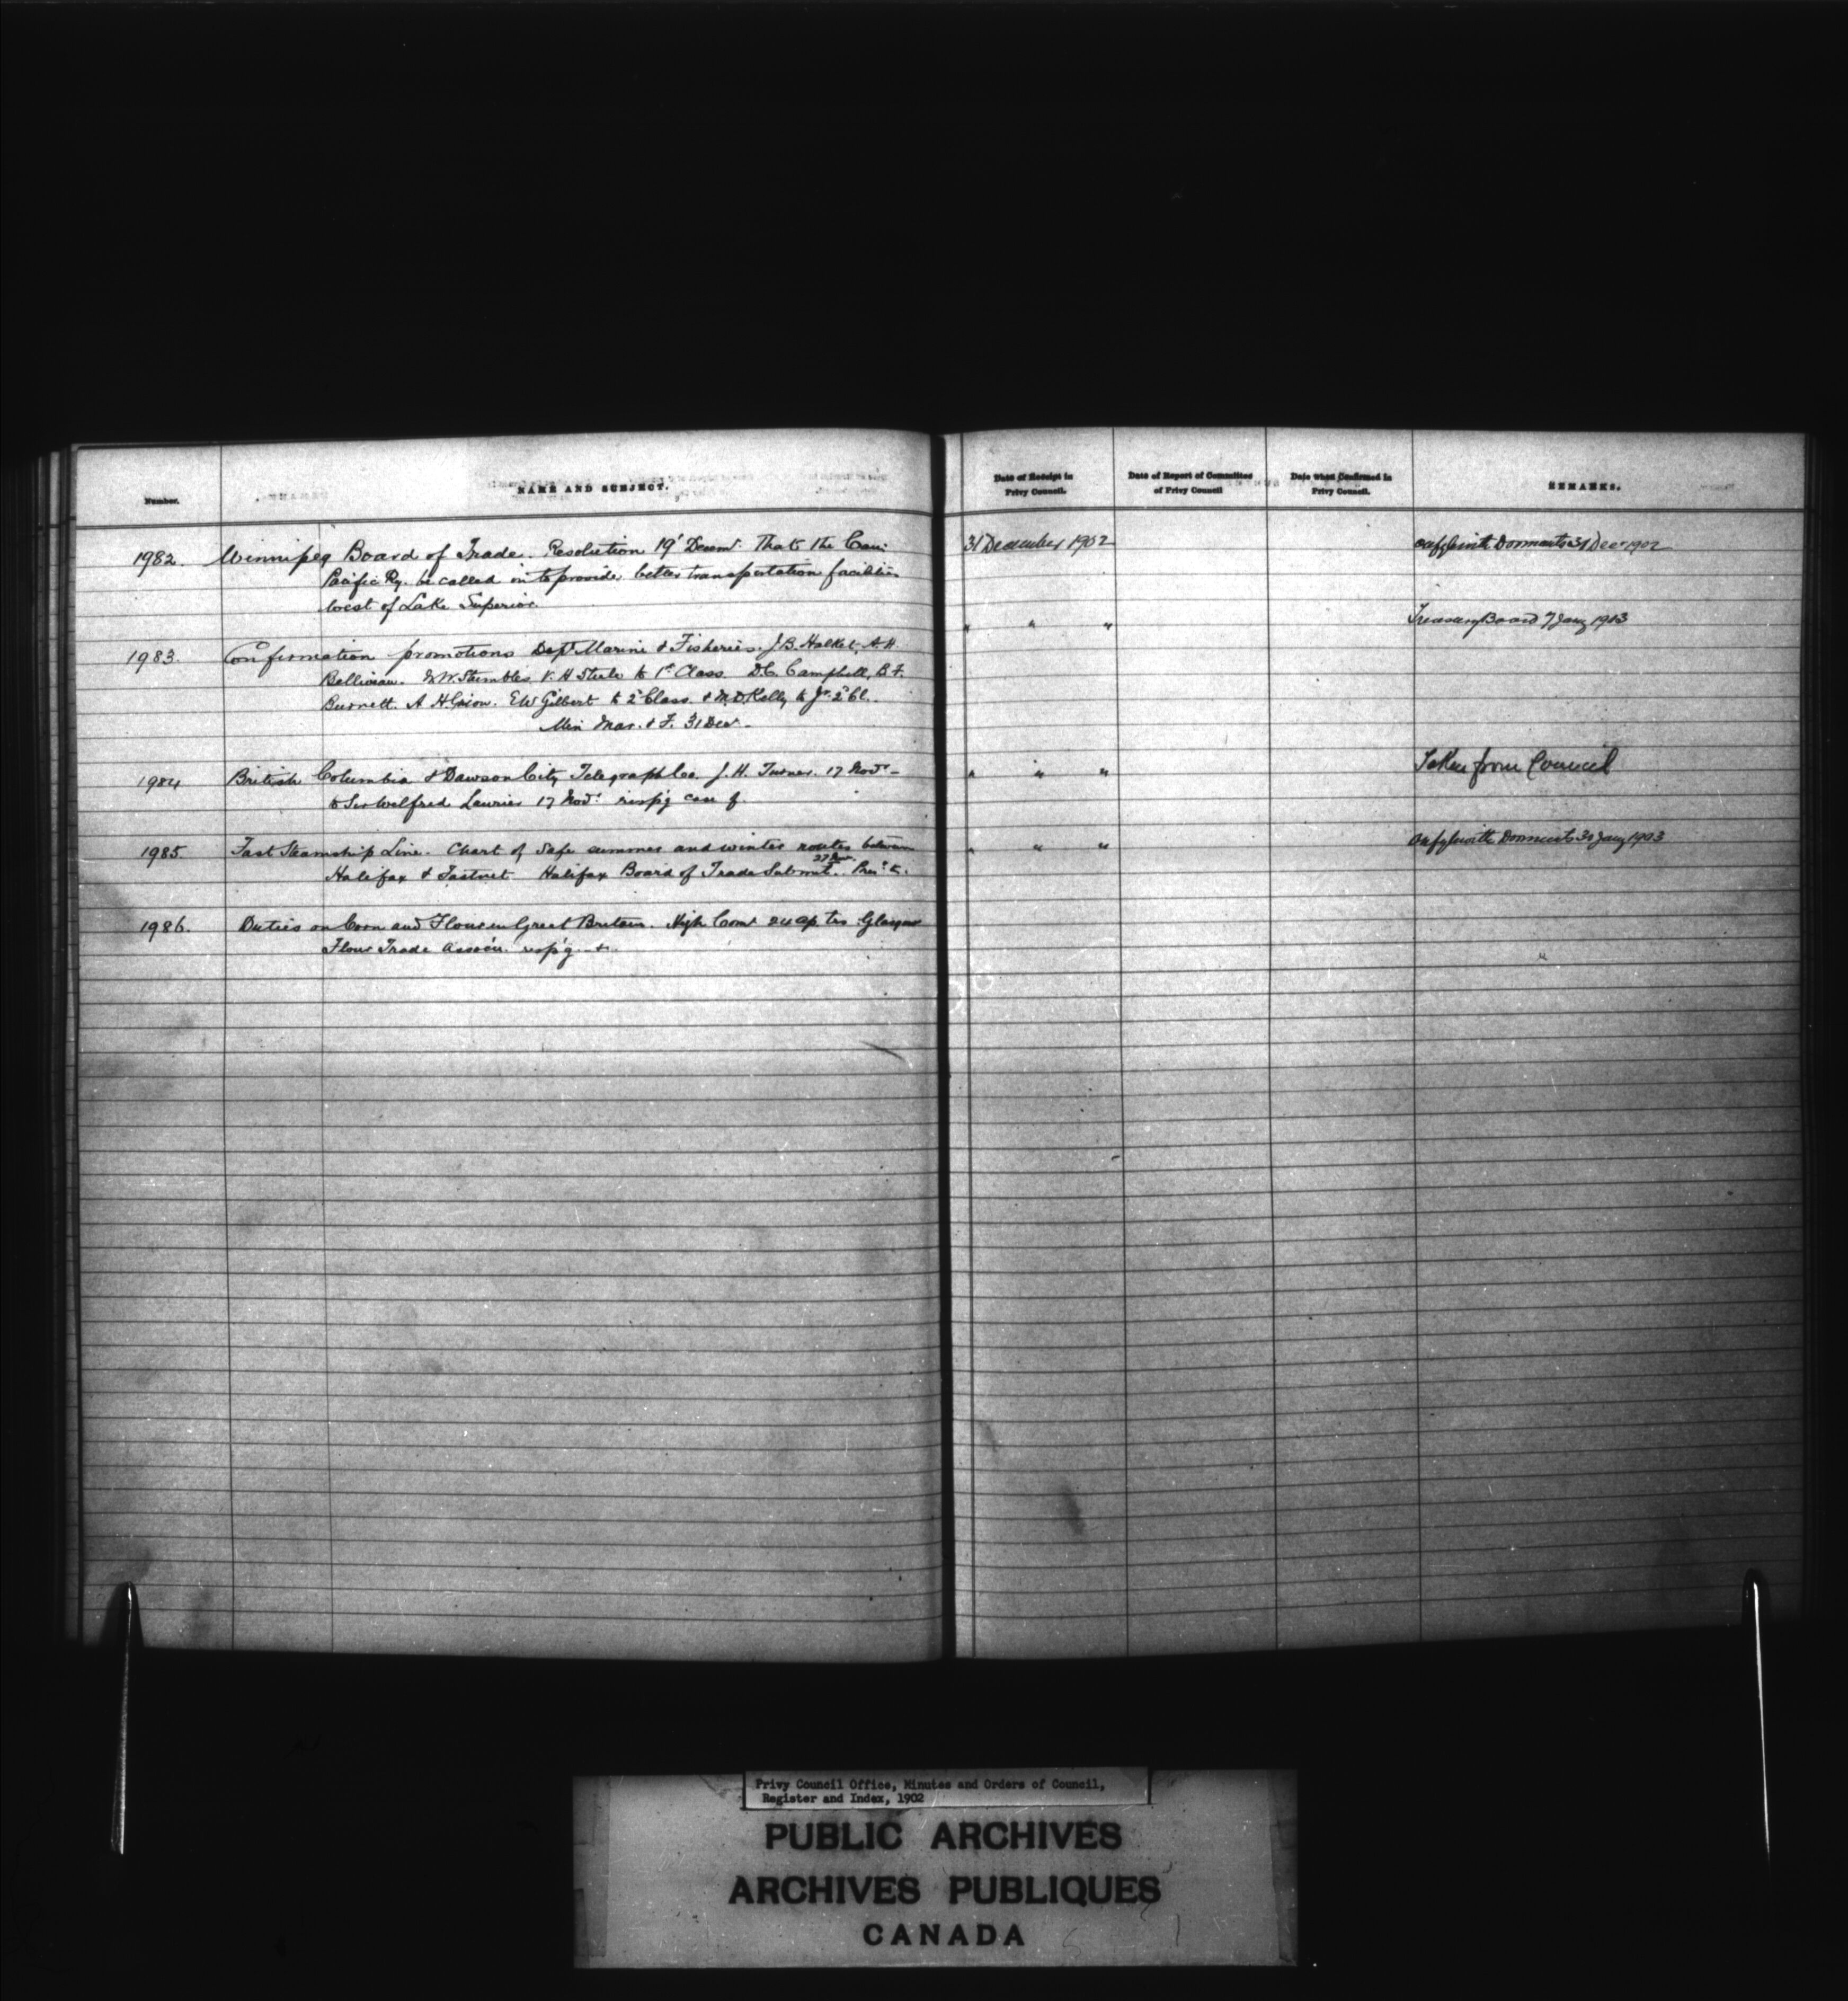 Number.
NAME AND SUBJECT.
Date of Receipt in
Privy Council.
Date of Report of Committee
of Privy Council
Date when Confirmed in
Privy Council.
REMARKS.
1982. Winnipeg Board of Trade. Resolution 19' Decem^r. That the Can:
Pacific Ry. be called on to provide better transportation facilities
west of Lake Superior.
31 December 1902
with Dormants 31 Dec^r 1902
1983. Confirmation promotions Dep^t Marine & Fisheries. J. B. Halket, A. H.
Belliveau. W. Stumbles. V. H Steele to 1^st Class. D. C. Campbell, B. F.
Burnett. A H. E W Gilbert to 2^d Class. & M. D. Kelly to J^r. 2^d Cl..
Min Mar. & F. 31 Dec^r.
" " "
Treasury Board 7 Jany 1903
1984 British Columbia & Dawson City Telegraph Co. J. H. Turner. 17 Nov^r -
to Sir Wilfred Laurier 17 Nov^r resp'g case of.
" " "
Taken from Council
1985. Fast Steamship Line. Chart of Safe summer and winter routes between
Halifax & Fastnet. Halifax Board of Trade Submit.
" " "
with Dormants 30 Jany 1903
1986. Duties on Corn and Flour in Great Britain. High Com^r 24 Ap. Glasgow
Flour Trade Assoc'n. resp'g
"
Privy Council Office, Minutes and Orders of Council,
Register and Index, 1902
PUBLIC ARCHIVES
ARCHIVES PUBLIQUES
CANADA